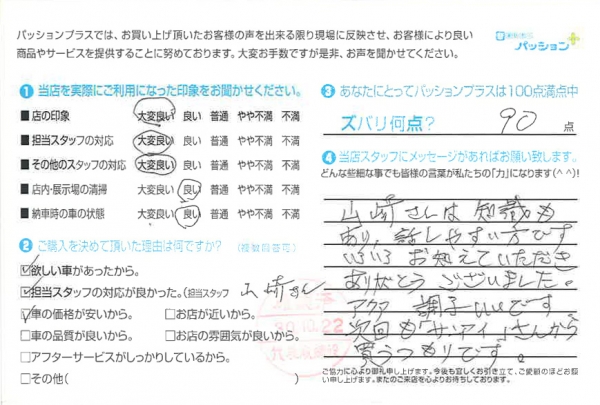 パッションプラスでは、お買い上げ頂いたお客様の声を出来る限り現場に反映させ、お客様により良い
商品やサービスを提供することに努めております。大変お手数ですが是非、お声を聞かせてください。
パッション
1 当店を実際にご利用になった印象をお聞かせください。
■店の印象 大変良い 良い 普通 やや不満 不満
■担当スタッフの対応 大変良い 良い 普通 やや不満 不満
■その他のスタッフの対応 大変良い 良い 普通 やや不満 不満
■店内・展示場の清掃 大変良い 良い 普通 やや不満 不満
■納車時の車の状態 大変良い 良い 普通 やや不満 不満
2 ご購入を決めて頂いた理由は何ですか? (複数回答可)
☑欲しい車があったから。
☑担当スタッフの対応が良かった。(担当スタッフ 山崎さん
☑車の価格が安いから。 □お店が近いから。
□車の品質が良いから。 □お店の雰囲気が良いから。
□アフターサービスがしっかりしているから。
□その他(
30.10.22
3 あなたにとってパッションプラスは100点満点中
ズバリ何点? 90 点
4 当店スタッフにメッセージがあればお願い致します。
どんな些細な事でも皆様の言葉が私たちの「力」になります(^^)!
山崎さんは知識も
あり、話しやすい方です
いろいろお知えていただき
ありがとうございました。
アクア 調子いいです。
次回も「サンアイ」さんから
買うつもりです。
ご協力に心より御礼申し上げます。今後も宜しくお引き立て、ご愛顧のほどお願い申し上げます。またのご来店を心よりお待ちしております。